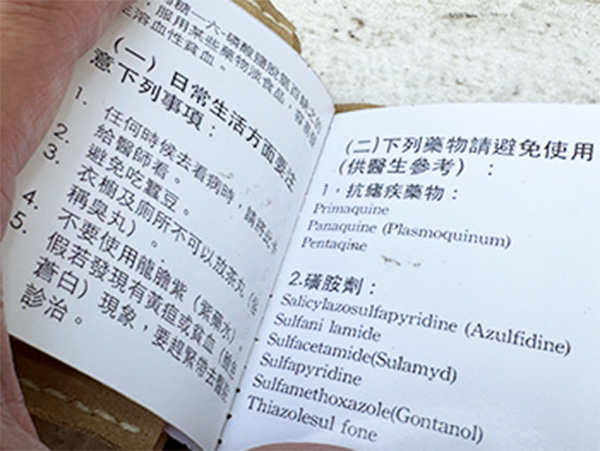 糖一六-磷酸鹽脫氫百
，服用某些藥物或食品，容易
溶血性貧血。
(一)日常生活方面要注
意下列事項：
1. 任何時候去看病時，請將此卡
給醫師看。
2. 避免吃蠶豆。
3. 衣櫥及廁所不可以放茶丸(俗
稱臭丸)。
4. 不要使用龍膽紫(紫藥水)。
5. 假若發現有黃疸或貧血(臉色
蒼白)現象，要趕緊帶去醫院
診治。
(二)下列藥物請避免使用
(供醫生參考)：
1，抗瘧疾藥物：
Primaquine
Panaquine (Plasmoquinum)
Pentaqine
2.磺胺劑：
Salicylazosulfapyridine (Azulfidine)
Sulfani lamide
Sulfacetamide(Sulamyd)
Sulfapyridine
Sulfamethoxazole(Gontanol)
Thiazolesul fone